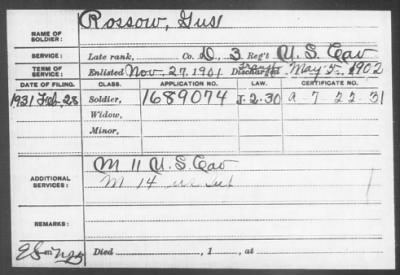 NAME OF SOLDIER: Rossow, Gust
SERVICE: Late rank, Co. D, 3 Reg't U. S. Cav
TERM OF SERVICE: Enlisted Nov. 27, 1901 Discharged May 5, 1902
DATE OF FILING. CLASS. APPLICATION NO. LAW. CERTIFICATE NO.
1931 Feb. 28 Soldier, 1689074 J-2-30 a 7 22 31
Widow,
Minor,
ADDITIONAL SERVICES: M 11 U. S Cav
M 14
REMARKS:
Died , 1 , at